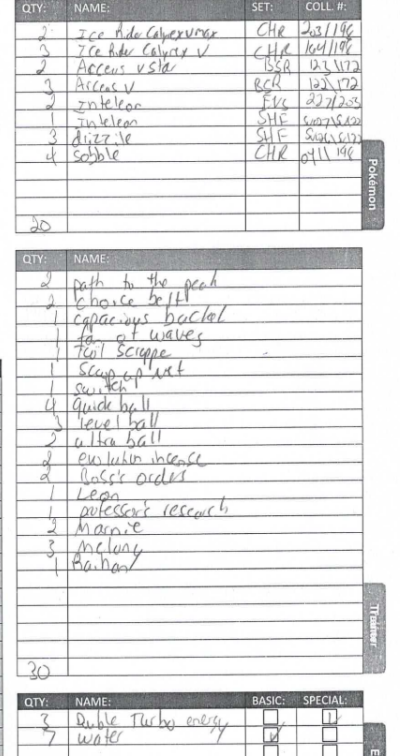 QTY: NAME: SET: COLL. #:
2 Ice Rider Calyrex vmax CHR 203/198
3 Ice Rider Calyrex V CHR 164/198
2 Arceus vstar BSR 123/172
3 Arceus V BCR 122/172
2 Inteleon EVS 227/203
1 Inteleon SHF
3 drizzile SHF
4 Sobble CHR 041/198
20
Pokémon
QTY: NAME:
2 path to the peak
2 choice belt
1 capacious bucket
1 fan of waves
1 tool Scrapper
1 Scoop up net
1 switch
4 quick ball
3 level ball
2 ultra ball
2 evolution incense
2 Boss's orders
1 Leon
1 professor's research
2 Marnie
3 Melony
1 Raihan
30
Trainer
QTY: NAME: BASIC: SPECIAL:
3 Double Turbo energy
7 water
E